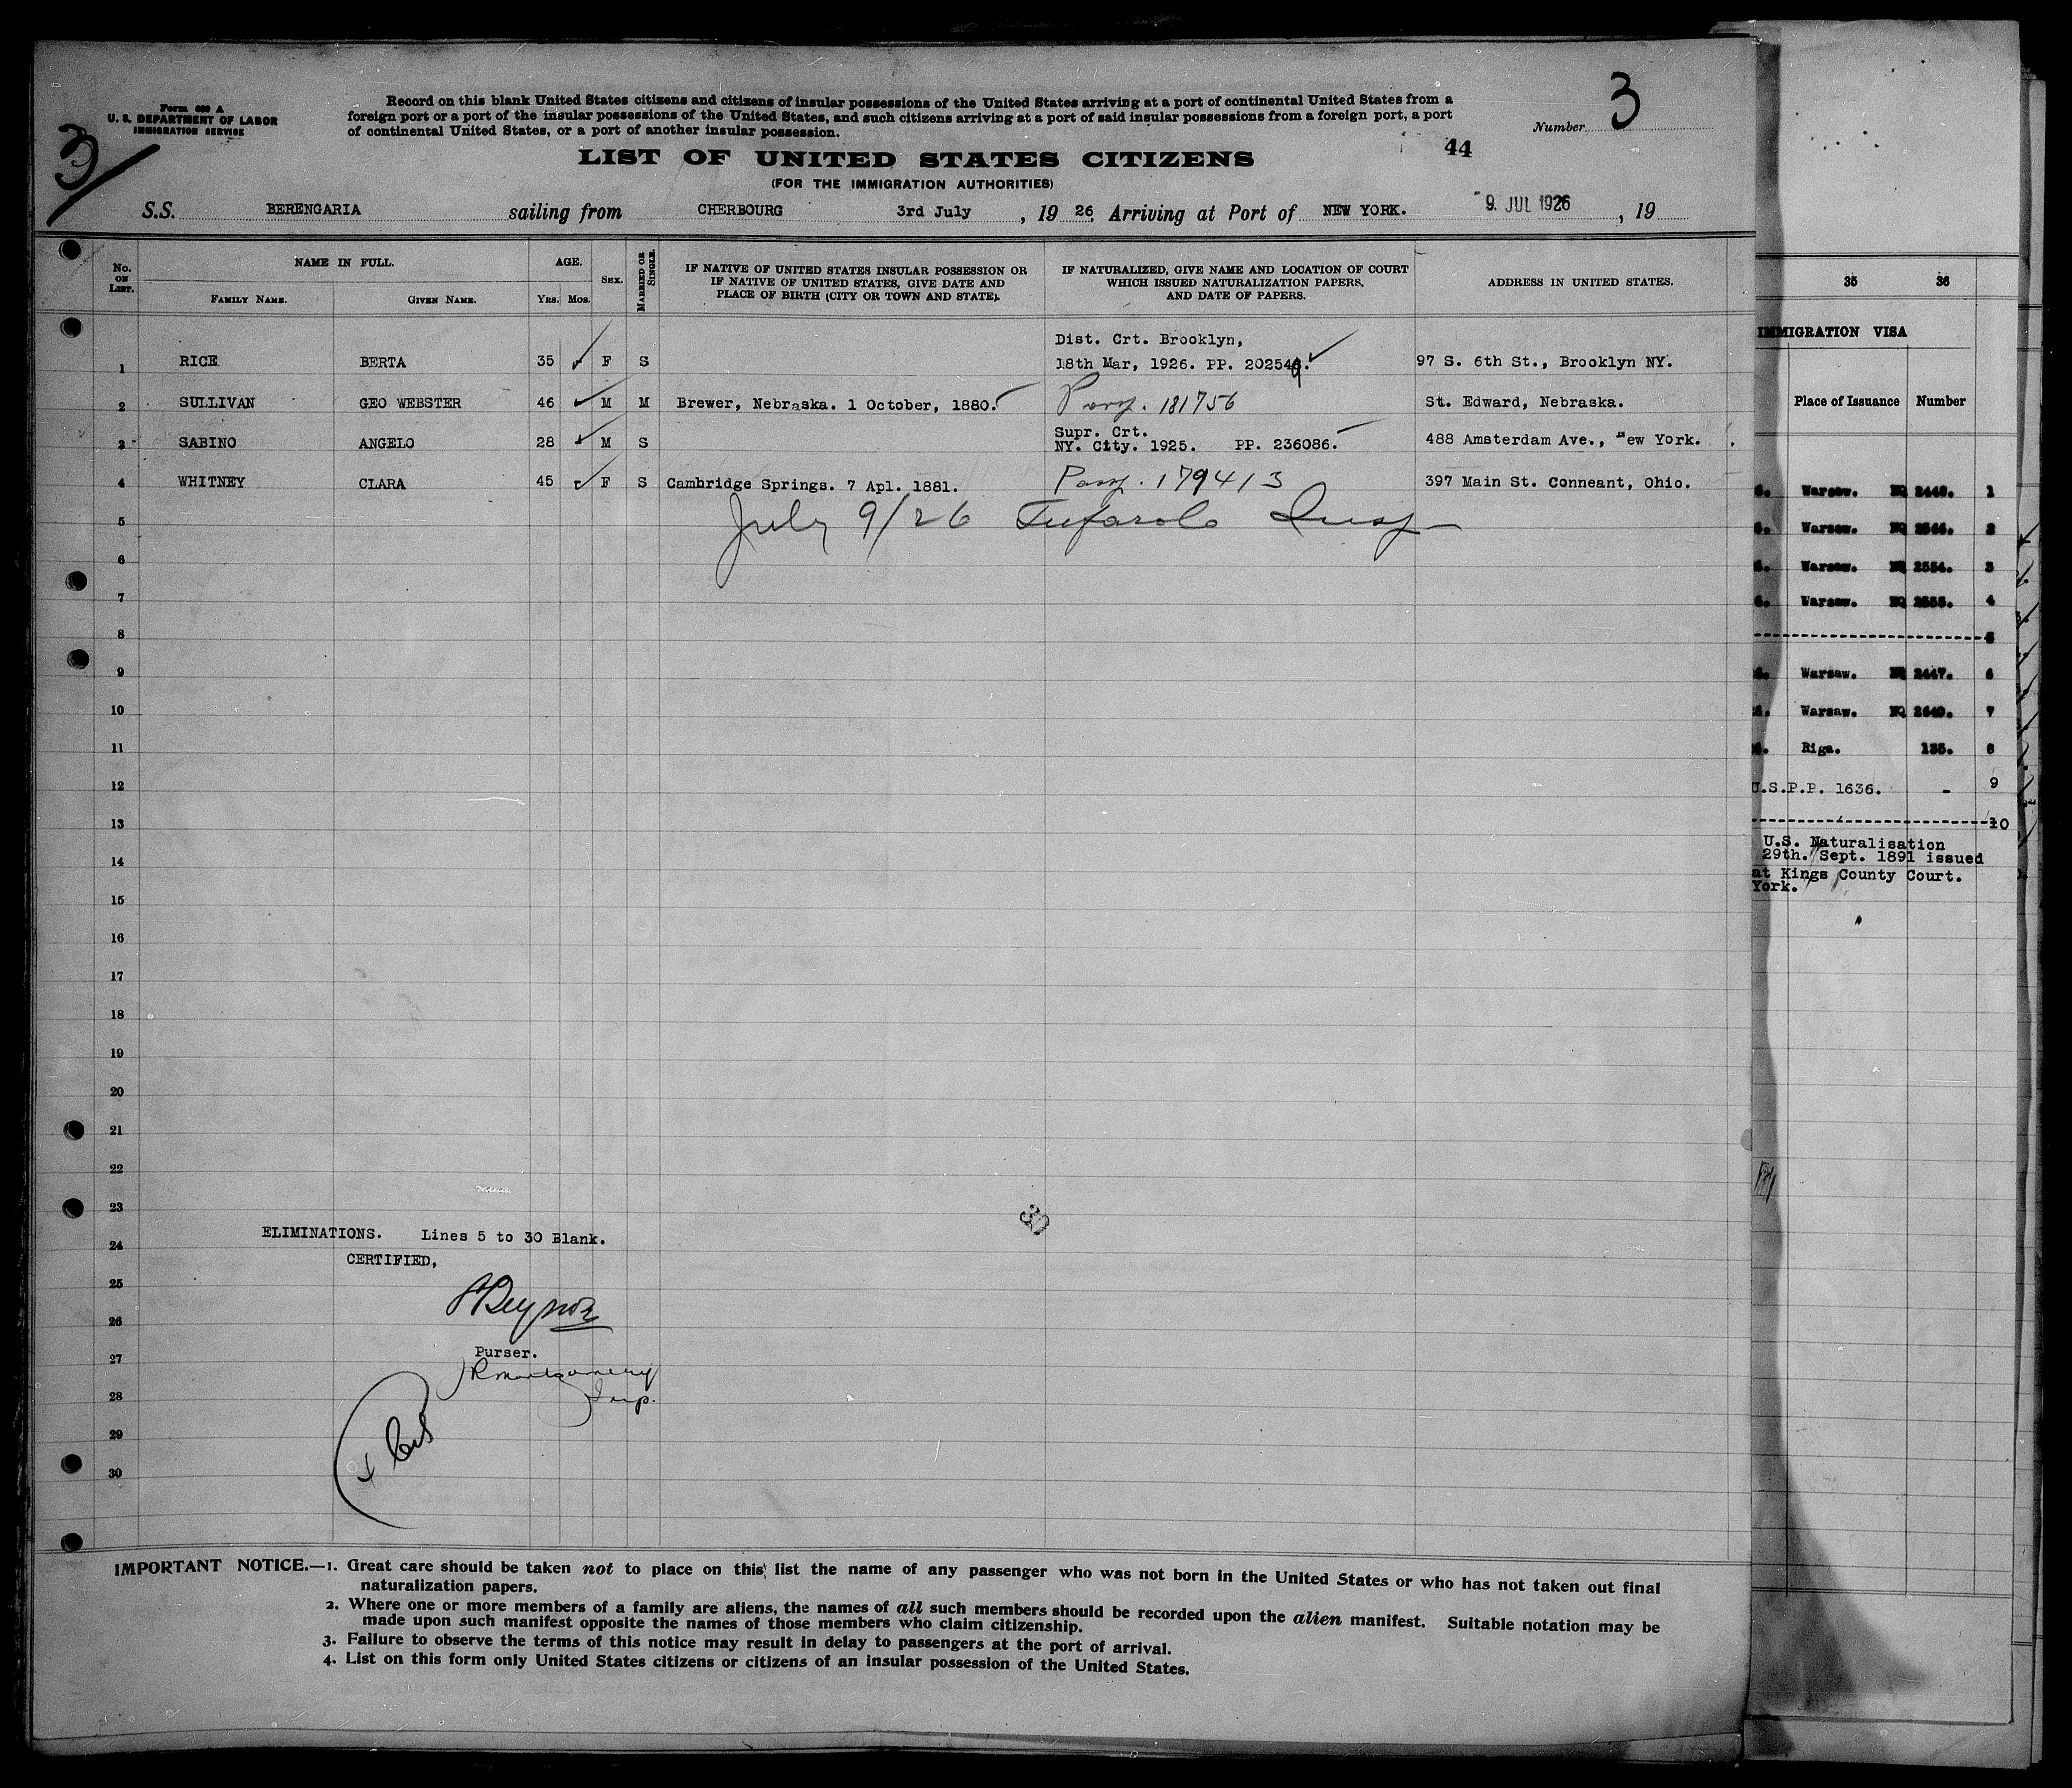 Form 630 A
U. S. DEPARTMENT OF LABOR
IMMIGRATION SERVICE
3
Record on this blank United States citizens and citizens of insular possessions of the United States arriving at a port of continental United States from a
foreign port or a port of the insular possessions of the United States, and such citizens arriving at a port of said insular possessions from a foreign port, a port
of continental United States, or a port of another insular possession.
Number 3
LIST OF UNITED STATES CITIZENS
44
(FOR THE IMMIGRATION AUTHORITIES)
S.S. BERENGARIA sailing from CHERBOURG 3rd July, 19 26, Arriving at Port of NEW YORK. 9 JUL 1926, 19
No. ON LIST. NAME IN FULL. AGE. SEX. MARRIED OR SINGLE. IF NATIVE OF UNITED STATES INSULAR POSSESSION OR IF NATIVE OF UNITED STATES, GIVE DATE AND PLACE OF BIRTH (CITY OR TOWN AND STATE). IF NATURALIZED, GIVE NAME AND LOCATION OF COURT WHICH ISSUED NATURALIZATION PAPERS, AND DATE OF PAPERS. ADDRESS IN UNITED STATES.
FAMILY NAME. GIVEN NAME. YRS. MOS.
Dist. Crt. Brooklyn,
1 RICE BERTA 35 F S 18th Mar, 1926. PP. 202549. 97 S. 6th St., Brooklyn NY.
2 SULLIVAN GEO WEBSTER 46 M M Brewer, Nebraska. 1 October, 1880. 181756 St. Edward, Nebraska.
Supr. Crt.
3 SABINO ANGELO 28 M S NY. City. 1925. PP. 236086. 488 Amsterdam Ave., New York.
4 WHITNEY CLARA 45 F S Cambridge Springs. 7 Apl. 1881. Pass. 179413 397 Main St. Conneant, Ohio.
5 July 9/26 Tufarolo Insp
6
7
8
9
10
11
12
13
14
15
16
17
18
19
20
21
22
23
ELIMINATIONS. Lines 5 to 30 Blank.
24
CERTIFIED,
25
26
Purser.
27
JR Montgomery
28 Insp.
29
30
IMPORTANT NOTICE.—1. Great care should be taken not to place on this list the name of any passenger who was not born in the United States or who has not taken out final
naturalization papers.
2. Where one or more members of a family are aliens, the names of all such members should be recorded upon the alien manifest. Suitable notation may be
made upon such manifest opposite the names of those members who claim citizenship.
3. Failure to observe the terms of this notice may result in delay to passengers at the port of arrival.
4. List on this form only United States citizens or citizens of an insular possession of the United States.
35 36
IMMIGRATION VISA
Place of Issuance Number
Warsaw. NQ 2448. 1
Warsaw. NQ 2544. 2
Warsaw. NQ 2554. 3
Warsaw. NQ 2555. 4
5
Warsaw. NQ 2447. 6
Warsaw. NQ 2640. 7
Riga. 135. 8
U.S.P.P. 1636. - 9
10
U.S. Naturalisation
29th. Sept. 1891 issued
at Kings County Court.
York.